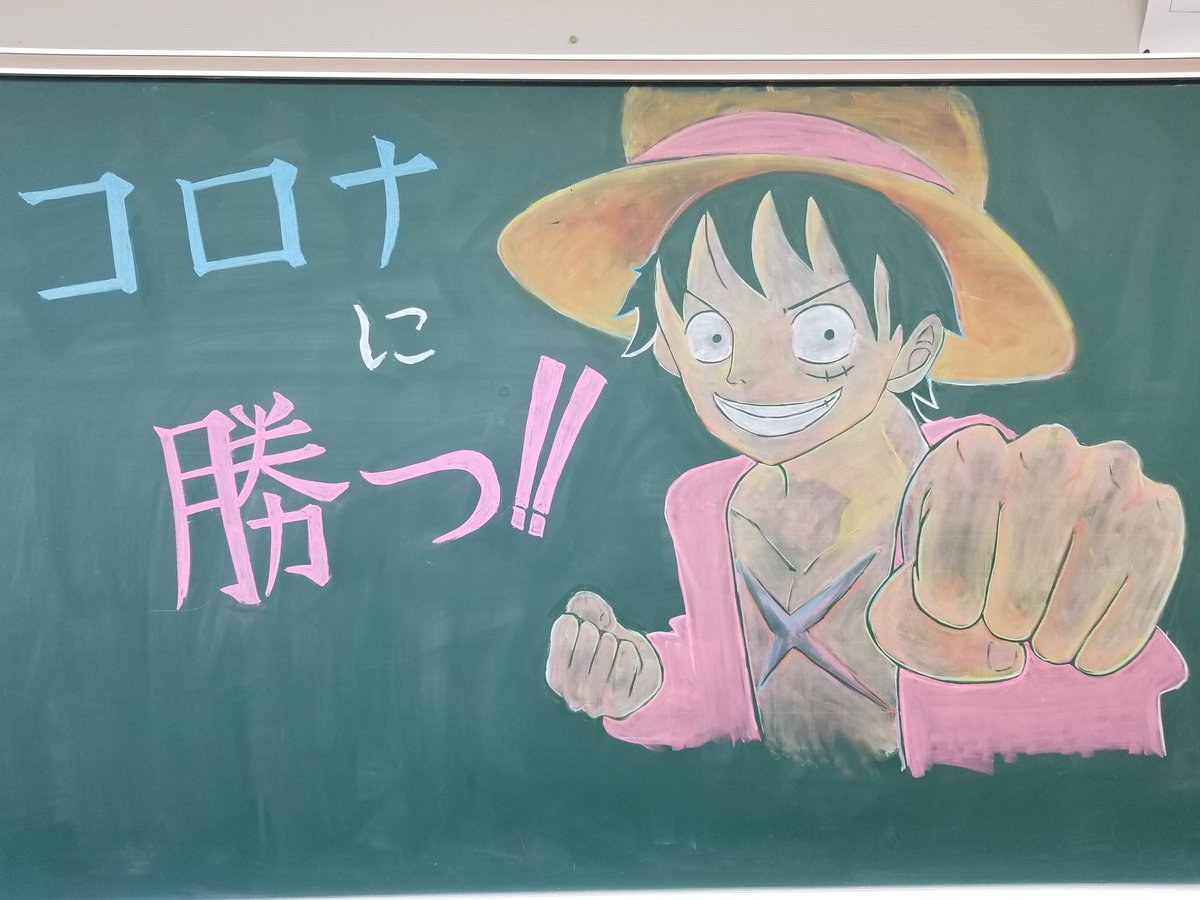 コロナ
に
勝つ!!